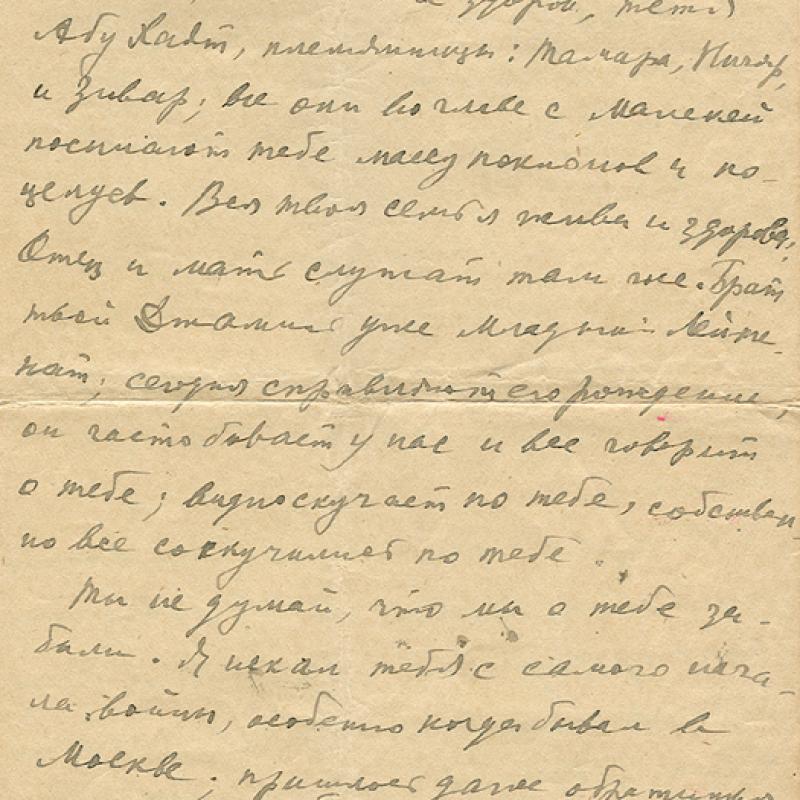 и здоров, тетя
Абу Хаят, племянницы: Тамара, Нигяр,
и Зивар; все они во главе с Малекей
посылают тебе массу поклонов и по-
целуев. Вся твоя семья жива и здорова,
Отец и мать служат там же. Брат
твой уже Младший Лейте-
нат; сегодня справляют его рождение,
он часто бывает у нас и все говорит
о тебе; видно скучает по тебе, собствен-
но все соскучились по тебе.
Ты не думай, что мы о тебе за-
были. Я искал тебя с самого нача-
ла войны, особенно когда бывал в
Москве; пришлось даже обратиться